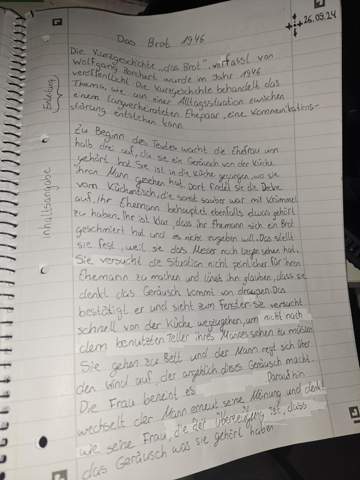 26.09.24
Das Brot 1946
Die Kurzgeschichte „das Brot", verfasst von
Wolfgang Borchert wurde im Jahr 1946
veröffentlicht. Die Kurzgeschichte behandelt das
Thema, wie aus einer Alltagssituation zwischen
einem langverheirateten Ehepaar, eine Kommunikations-
störung entstehen kann.
Einleitung
Zu Beginn des Textes wacht die Ehefrau um
halb drei auf, da sie ein Geräusch von der Küche
gehört hat. Sie ist in die Küche gegangen, wo sie
ihren Mann gesehen hat. Dort findet sie die Decke
vom Küchentisch, die sonst sauber war mit Krümmel
auf. Ihr Ehemann behauptet ebenfalls etwas gehört
zu haben. Ihr ist klar, dass ihr Ehemann sich ein Brot
geschmiert hat und es nicht zugeben will. Das stellt
sie fest, weil sie das Messer noch liegen sehen hat.
Sie versucht die Situation nicht peinlicher für ihren
Ehemann zu machen und lässt ihn glauben, dass sie
denkt das Geräusch kommt von draußen. Das
bestätigt er und sieht zum Fenster. Sie versucht
schnell von der Küche wegzugehen, um nicht nach
dem benutzten Teller ihres Mannes sehen zu müssen.
Sie gehen zu Bett und der Mann regt sich über
den Wind auf, der angeblich dieses Geräusch macht.
Die Frau bereint es. Daraufhin
wechselt der Mann erneut seine Meinung und denkt
wie seine Frau, die der Überzeugung ist, dass
das Geräusch was sie gehört haben
Inhaltsangabe